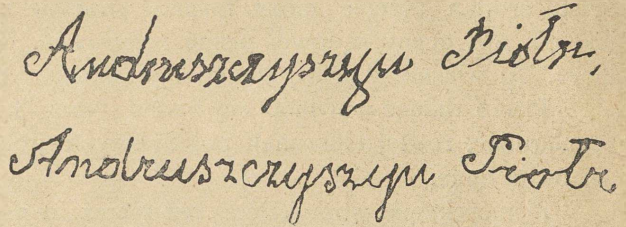 Andruszczyszyn Piotr,
Andruszczyszyn Piotr